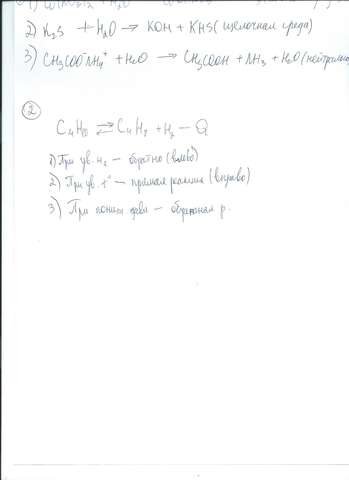 2) K₂S + H₂O → KOH + KHS (щелочная среда)
3) CH₃COO⁻NH₄⁺ + H₂O → CH₃COOH + NH₃ + H₂O (нейтральн
②
C₄H₁₀ ⇄ C₄H₈ + H₂ − Q
1) При ув. H₂ — обратно (влево)
2) При ув. t° — прямая реакция (вправо)
3) При пониж давл — обратная р.